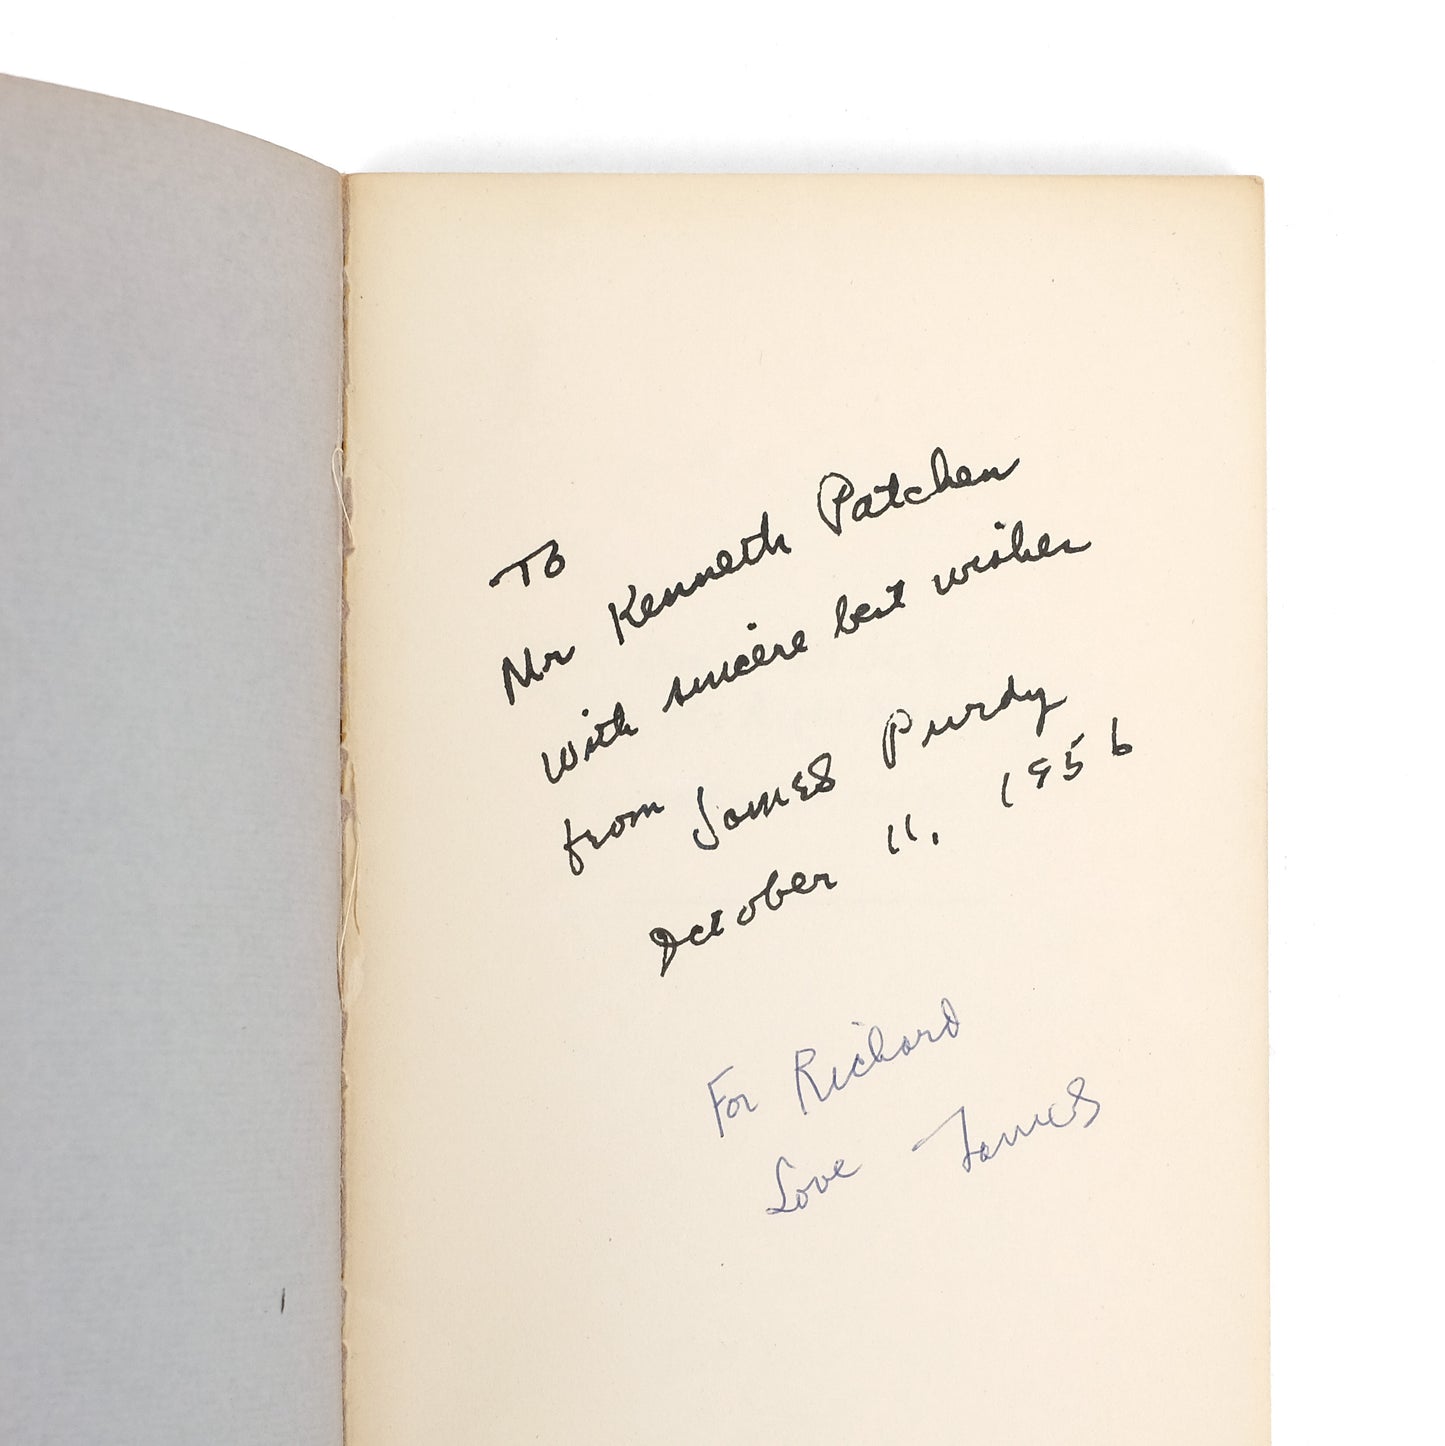 To
Mr Kenneth Patchen
with sincere best wishes
from James Purdy
October 11, 1956
For Richard
Love James